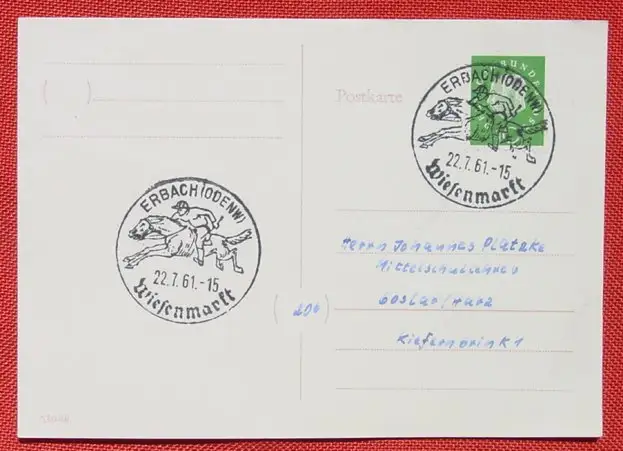 (      )
Postkarte
ERBACH (ODENW)
22.7.61.-15
Wiesenmarkt
ERBACH (ODENW)
22.7.61.-15
Wiesenmarkt
Herrn Johannes Platzke
Mittelschullehrer
(20b) Goslar/Harz
Kiefernbrink 1